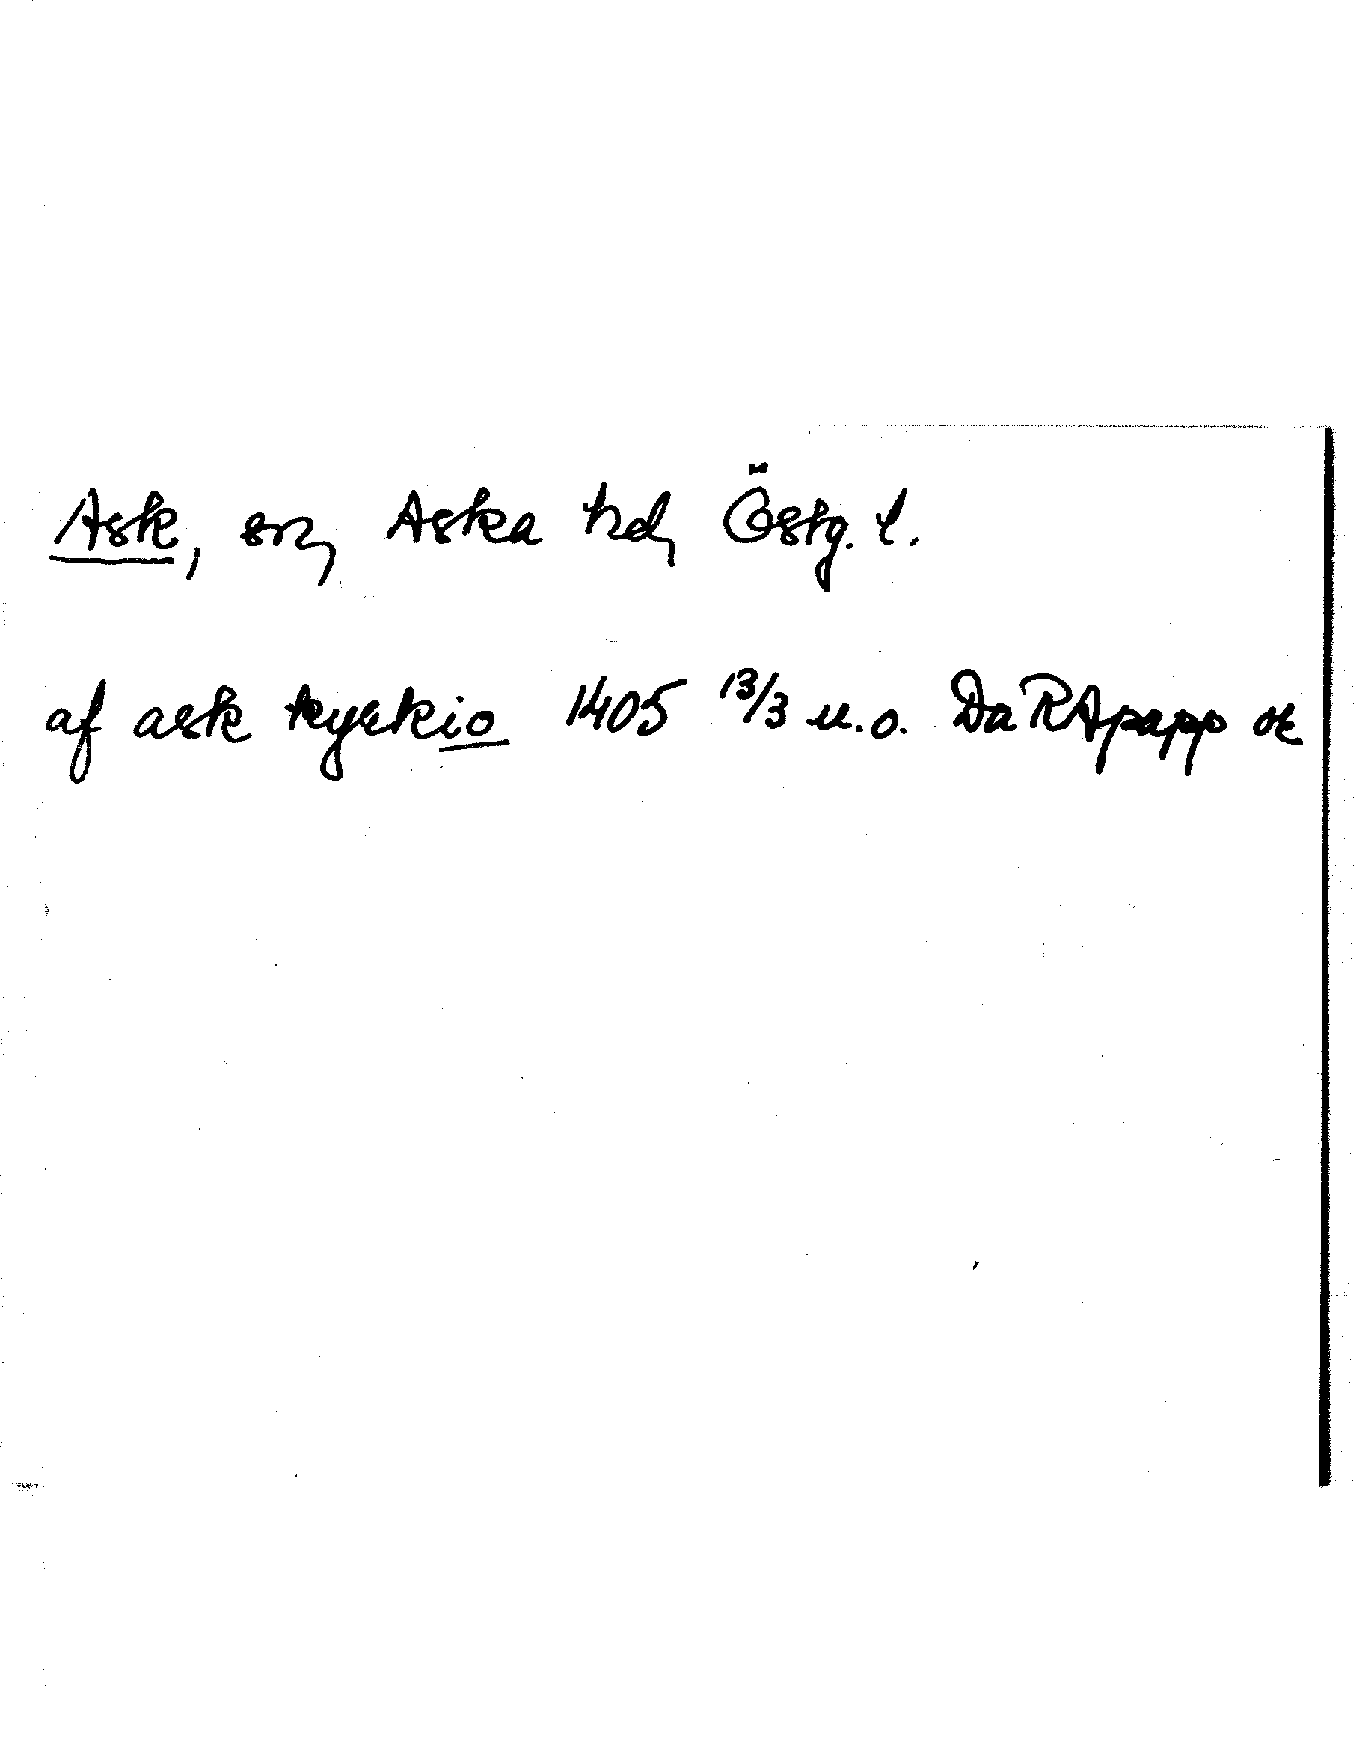 Ask, sn, Aska hd, Östg. l.
af ask kyrkio 1405 13/3 u.o. DaRApapp or